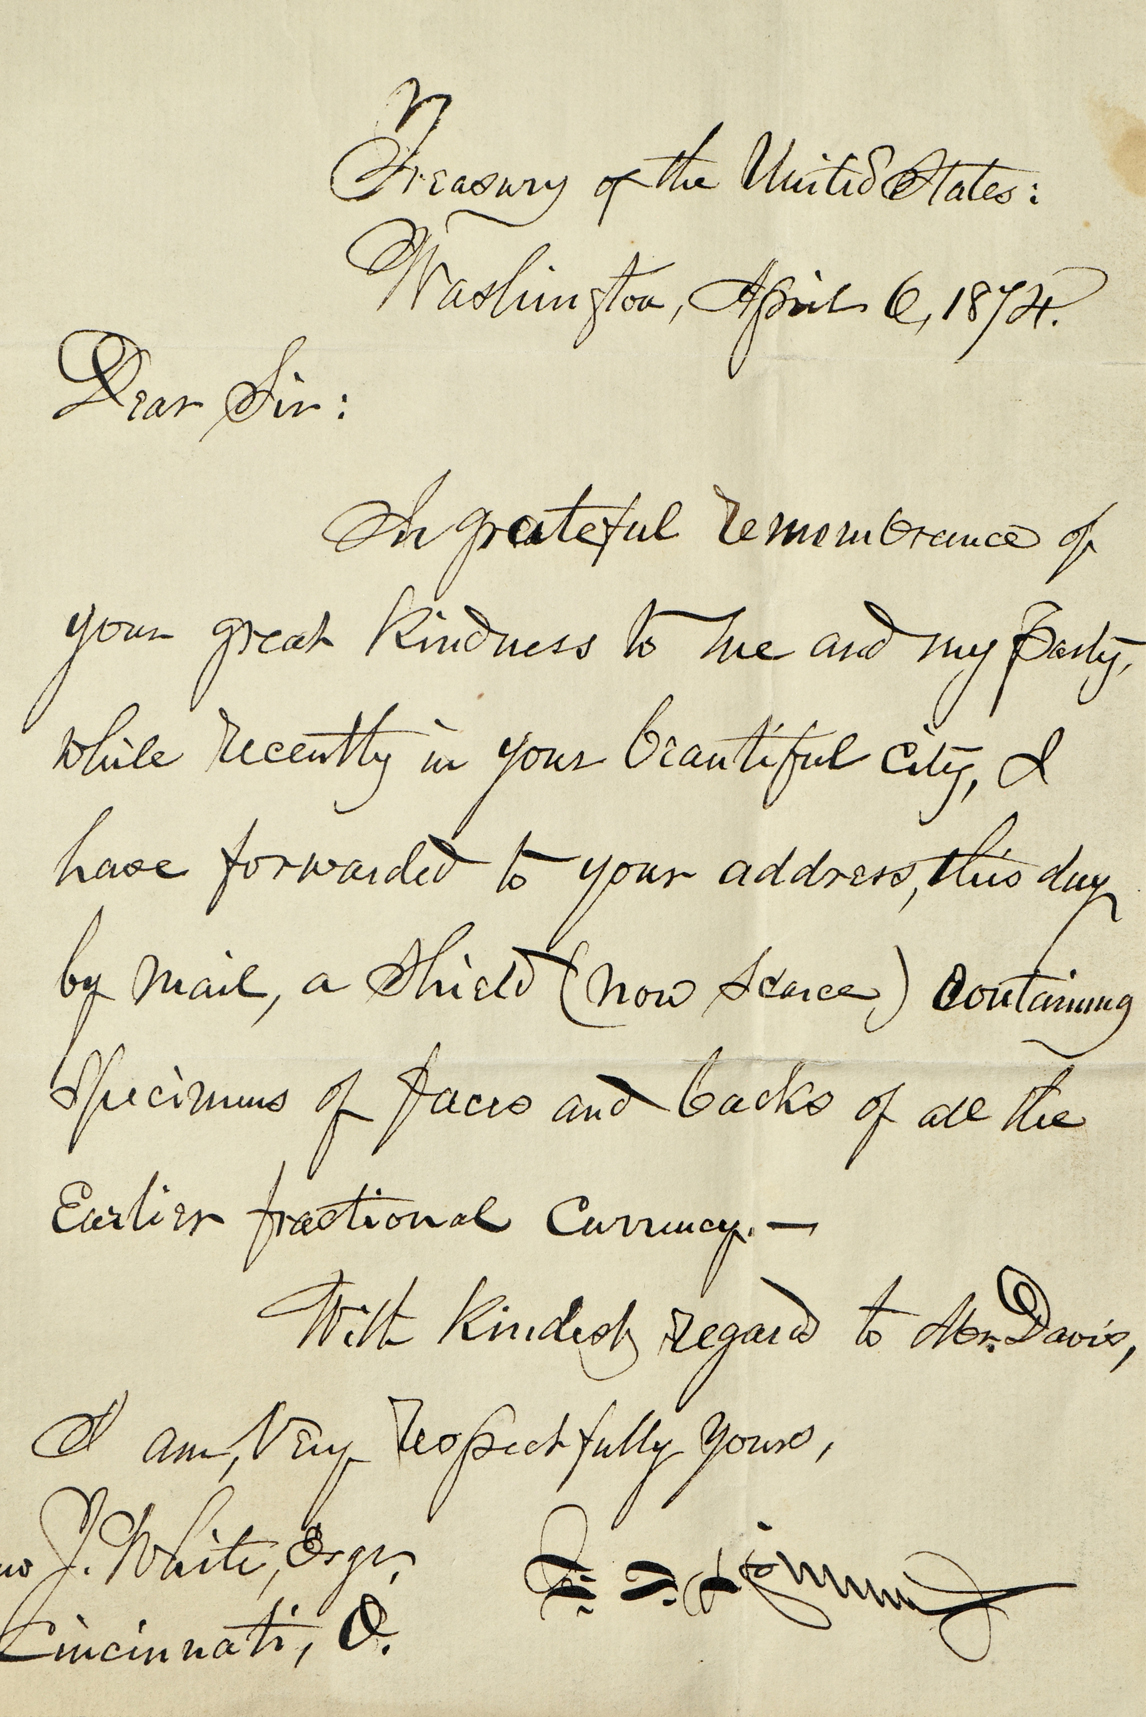 Treasury of the United States:
Washington, April 6, 1874.
Dear Sir:
In grateful remembrance of
your great kindness to me and my Party,
while recently in your beautiful city, I
have forwarded to your address, this day
by mail, a Shield (now scarce) containing
Specimens of faces and backs of all the
Earlier fractional Currency.—
With kindest regard to Mr. Davis,
I am, Very respectfully yours,
J. White, Esqr.
Cincinnati, O.